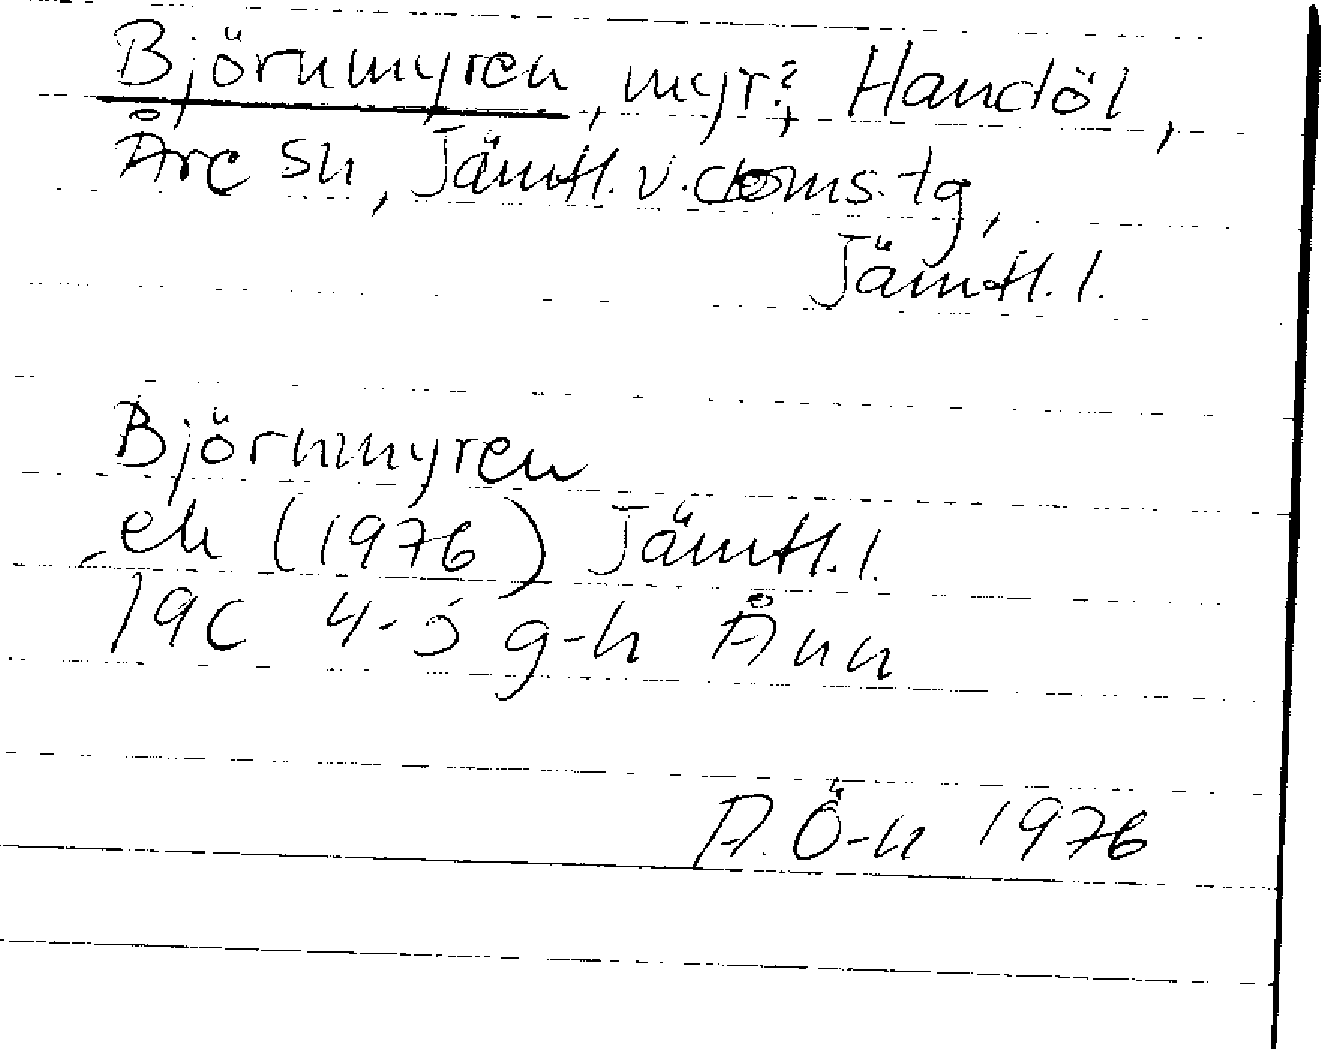 Björnmyren, myr?, Handöl,
Åre sn, Jämtl. v. doms. tg,
Jämtl. l.
Björnmyren
ek (1976) Jämtl. l.
19C 4-5 g-h Ånn
A. Ö-n 1976